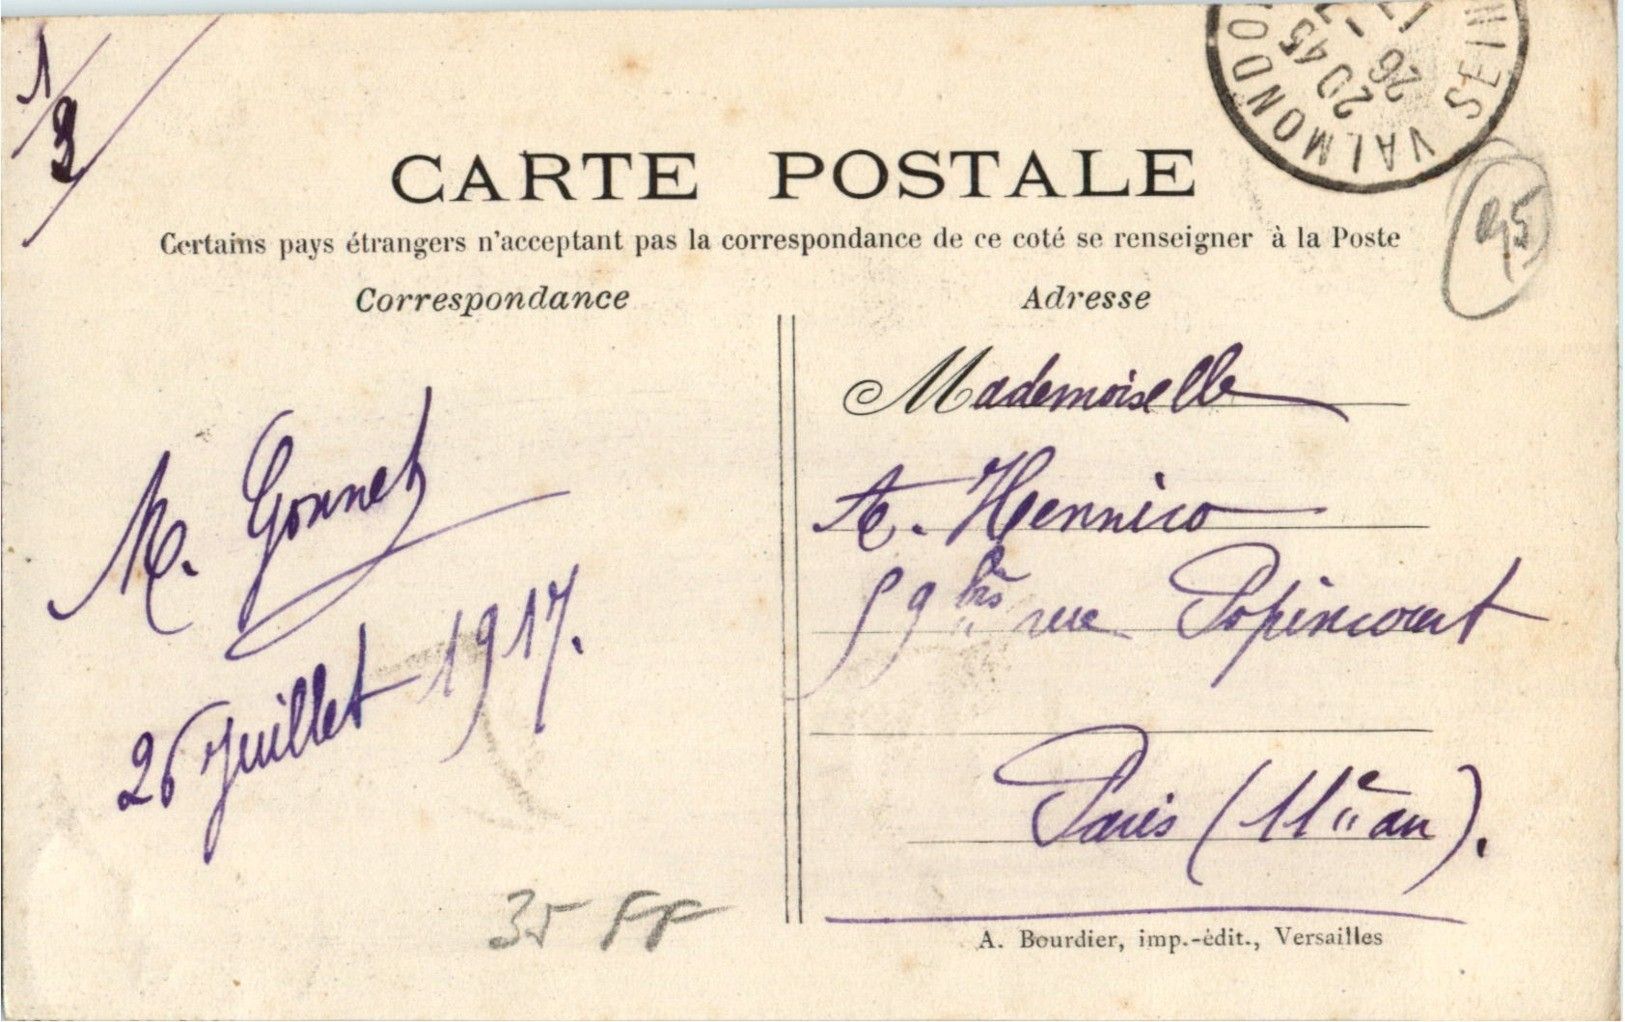 1/3
VALMONDO
SEINE
20 45
26 - 7
17
CARTE POSTALE
95
Certains pays étrangers n'acceptant pas la correspondance de ce coté se renseigner à la Poste
Correspondance
Adresse
M. Gonnet
26 Juillet 1917.
Mademoiselle
A. Hennico
59 bis rue Popincourt
Paris (11e an).
35 FF
A. Bourdier, imp.-édit., Versailles